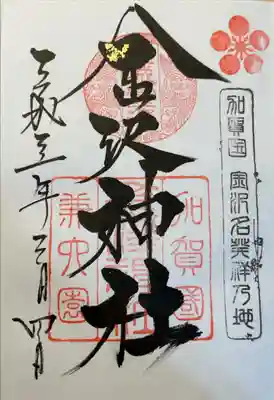 加賀国 金沢名発祥乃地
金沢神社
加賀国
兼六園
平成三年三月四日